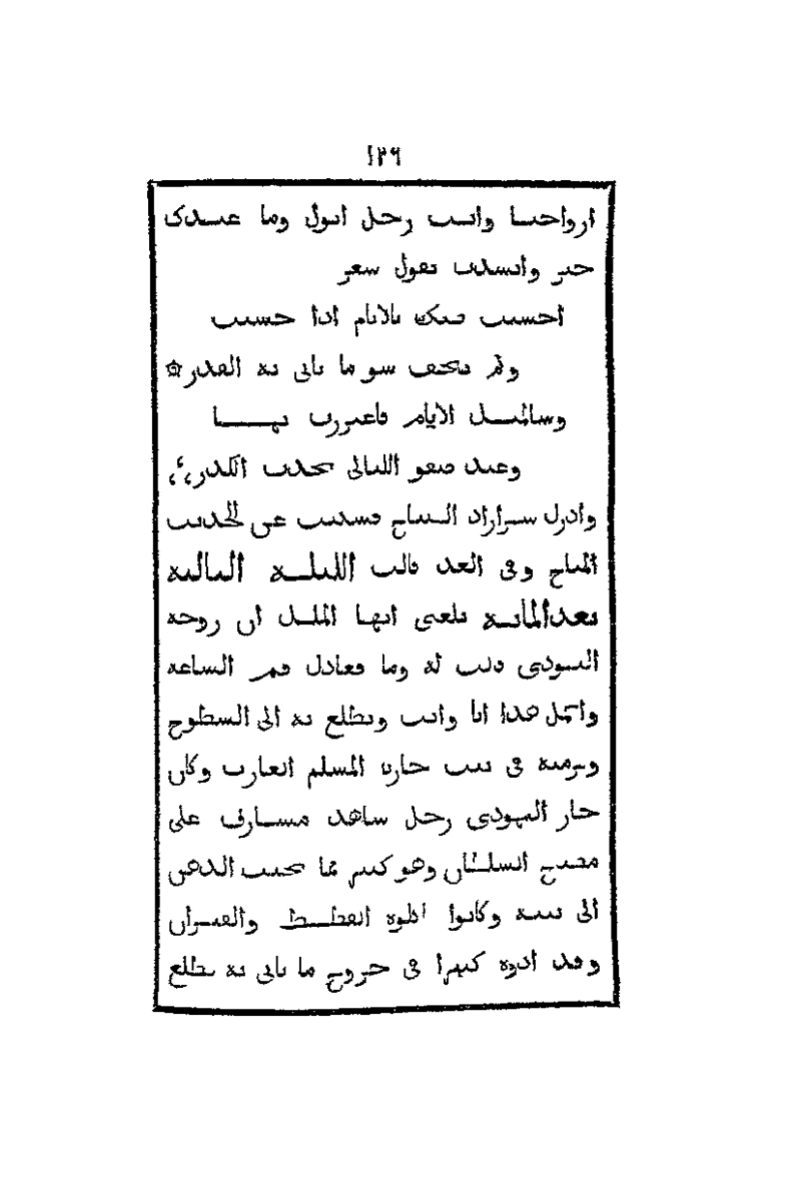 ١٢٩
ارواحنا وانت رجل اثول وما عندك
خبر وانشدت تقول شعر
احسنت ظنك بالايام اذا حسنت
ولم تخف سو ما ياتى به القدر
وسالمتك الايام فاغتررت بها
وعند صفو الليالى يحدث الكدر
وادرك شهرازاد الصباح فسكتت عن الحديث
المباح وفى الغد قالت الليلة الثالثة
بعد المائة بلغنى ايها الملك ان زوجة
اليهودى قالت له وما قعادك قم الساعة
واحمل هذا انا وانت ونطلع به الى السطوح
ونرميه فى بيت جارنا المسلم العازب وكان
جار اليهودى رجل شاهد مشارف على
مطبخ السلطان وهو كثير مما يجيب الدهن
الى بيته وكانوا اكلوه القطط والفيران
وقد اذوه كثيرا فى خروج ما ياتى به يطلع